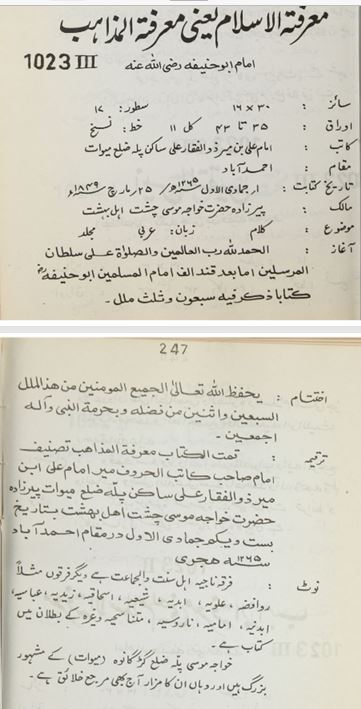 معرفتہ الاسلام یعنی معرفتہ المذاہب
امام ابو حنیفہ رضی اللہ عنہ
1023 III
سائز : ۳۰ × ۱۶ سطور: ۱۷
اوراق : ۳۵ تا ۴۳ کل ۱۱ خط: نسخ
کاتب : امام علی بن میر ذوالفقار علی ساکن پلہ ضلع میوات
مقام : احمد آباد
تاریخ کتابت : جمادی الاول ۱۲۶۵ھ / ۲۵ مارچ ۱۸۴۹ء
مالک : پیرزادہ حضرت خواجہ موسی چشت اہل بہشت
موضوع : کلام زبان: عربی مجلد
آغاز : الحمد للہ رب العالمین والصلوٰۃ علی سلطان
المرسلین اما بعد قند الف امام المسلمین ابو حنیفہ رض
کتابا ذکر فیہ سبعون و ثلث ملل۔
247
اختتام : یحفظ اللہ تعالیٰ الجمیع المومنین من ھذ الملل
السبعین واثنین من فضلہ وبحرمۃ النبی وآلہ
اجمعین۔
ترقیمہ : تمت الکتاب معرفۃ المذاھب تصنیف
امام صاحب کاتب الحروف میر امام علی ابن
میر ذو الفقار علی ساکن پلہ ضلع میوات پیرزادہ
حضرت خواجہ موسی چشت اھل بھشت بتاریخ
بست ویکم جمادی الاول در مقام احمد آباد
۱۲۶۵ سنہ ھجری
نوٹ : فرقہ ناجیہ اہل سنت والجماعت ہے دیگر فرقوں مثلاً
روافضہ ، علویہ ، ابدیہ ، شعیبہ ، اسحاقیہ ، زیدیہ ، عباسیہ،
امامیہ ، ناروسیہ ، تناسخیہ وغیرہ کے بطلان میں
کتاب ہے۔
خواجہ موسی پلہ ضلع گڑگانوہ (میوات) کے مشہور
بزرگ ہیں اور وہاں ان کا مزار آج بھی مرجع خلائق ہے۔